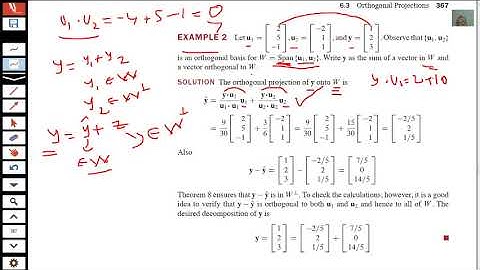 6.3 Orthogonal Projections 367
u₁ · u₂ = -4 + 5 - 1 = 0
EXAMPLE 2 Let u₁ = [2 5 -1], u₂ = [-2 1 1], and y = [1 2 3]. Observe that {u₁, u₂}
is an orthogonal basis for W = Span {u₁, u₂}. Write y as the sum of a vector in W and
a vector orthogonal to W.
y = y₁ + y₂
y₁ ∈ W
y₂ ∈ W⊥
y = ŷ + z
∈ W
∈ W⊥
SOLUTION The orthogonal projection of y onto W is
y · u₁ = 2 + 10
ŷ = y·u₁/u₁·u₁ u₁ + y·u₂/u₂·u₂ u₂
= 9/30 [2 5 -1] + 3/6 [-2 1 1] = 9/30 [2 5 -1] + 15/30 [-2 1 1] = [-2/5 2 1/5]
Also
y - ŷ = [1 2 3] - [-2/5 2 1/5] = [7/5 0 14/5]
Theorem 8 ensures that y - ŷ is in W⊥. To check the calculations, however, it is a good
idea to verify that y - ŷ is orthogonal to both u₁ and u₂ and hence to all of W. The
desired decomposition of y is
y = [1 2 3] = [-2/5 2 1/5] + [7/5 0 14/5]